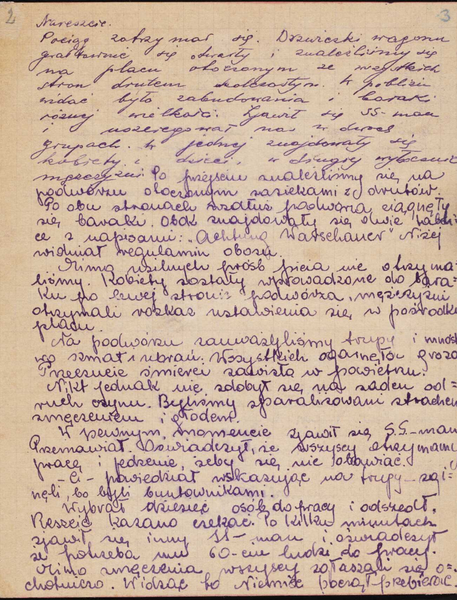 2
3
Nareszcie.
Pociąg zatrzymał się. Drzwiczki wagonu
się otwarły i znaleźliśmy się
na placu otoczonym ze wszystkich
stron drutem kolczastym. W pobliżu
widać było zabudowania i baraki
różnej wielkości. Zjawił się SS-man
i uszeregował nas w dwóch
grupach. W jednej znajdowały się
kobiety i dzieci, w drugiej wyłącznie
mężczyźni. Po przejściu znaleźliśmy się na
podwórzu otoczonym zasiekami z drutów.
Po obu stronach wzdłuż podwórza ciągnęły
się baraki. Obok znajdowały się dwie tabli-
ce z napisami: "Achtung Warschauer" Niżej
widniał regulamin obozu.
Mimo usilnych próśb picia nie otrzyma-
liśmy. Kobiety zostały wprowadzone do bara-
ku po lewej stronie podwórza, mężczyźni
otrzymali rozkaz ustawienia się w pośrodku
placu.
Na podwórzu zauważyliśmy trupy i mnóst-
wo szmat i ubrań. Wszystkich ogarnęła groza.
Przeczucie śmierci zawisło w powietrzu.
Nikt jednak nie zdobył się na żaden od-
ruch czynu. Byliśmy sparaliżowani strachem
zmęczeniem i głodem.
W pewnym momencie zjawił się S.S-man
Przemawiał. Oświadczył, że wszyscy otrzymamy
pracę i jedzenie, żeby się nie obawiać.
- Ci - powiedział wskazując na trupy - zgi-
nęli, bo byli buntownikami.
Wybrał dziesięć osób do pracy i odszedł.
Reszcie kazano czekać. Po kilku minutach
zjawił się inny SS-man i oświadczył
że potrzeba mu 60-ciu ludzi do pracy.
Mimo zmęczenia wszyscy zgłaszali się o-
chotniczo. Widząc to Niemiec począł przebierać